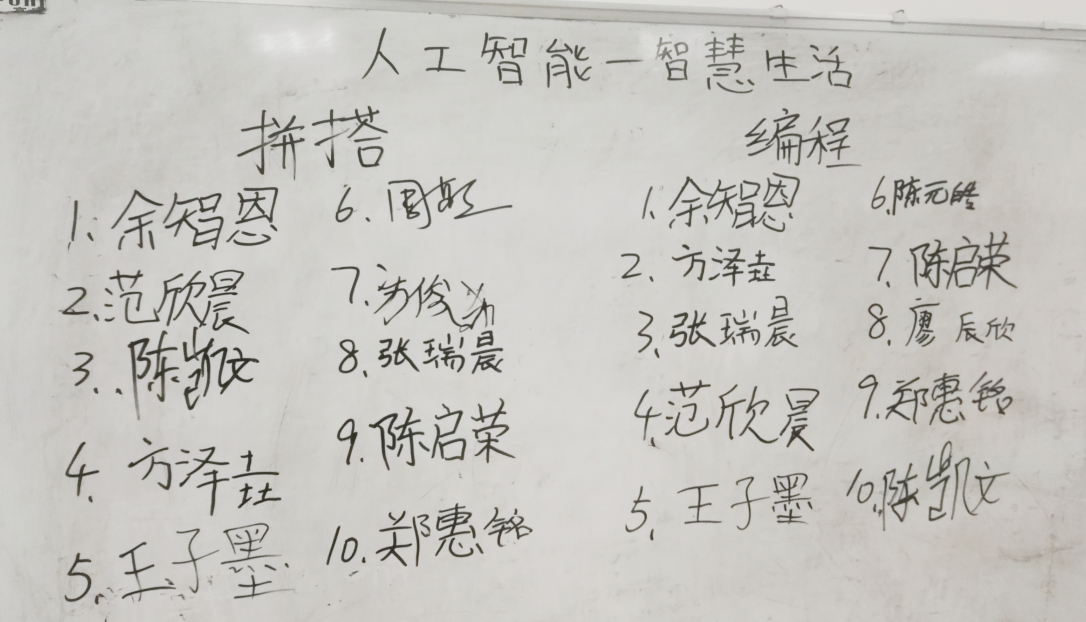 人工智能一智慧生活
拼搭
1. 余智恩
2. 范欣晨
3. 陈凯文
4. 方泽垚
5. 王子墨
6. 周
7. 方俊
8. 张瑞晨
9. 陈启荣
10. 郑惠铭
编程
1. 余智恩
2. 方泽垚
3. 张瑞晨
4. 范欣晨
5. 王子墨
6. 陈元皓
7. 陈启荣
8. 廖辰欣
9. 郑惠铭
10. 陈凯文